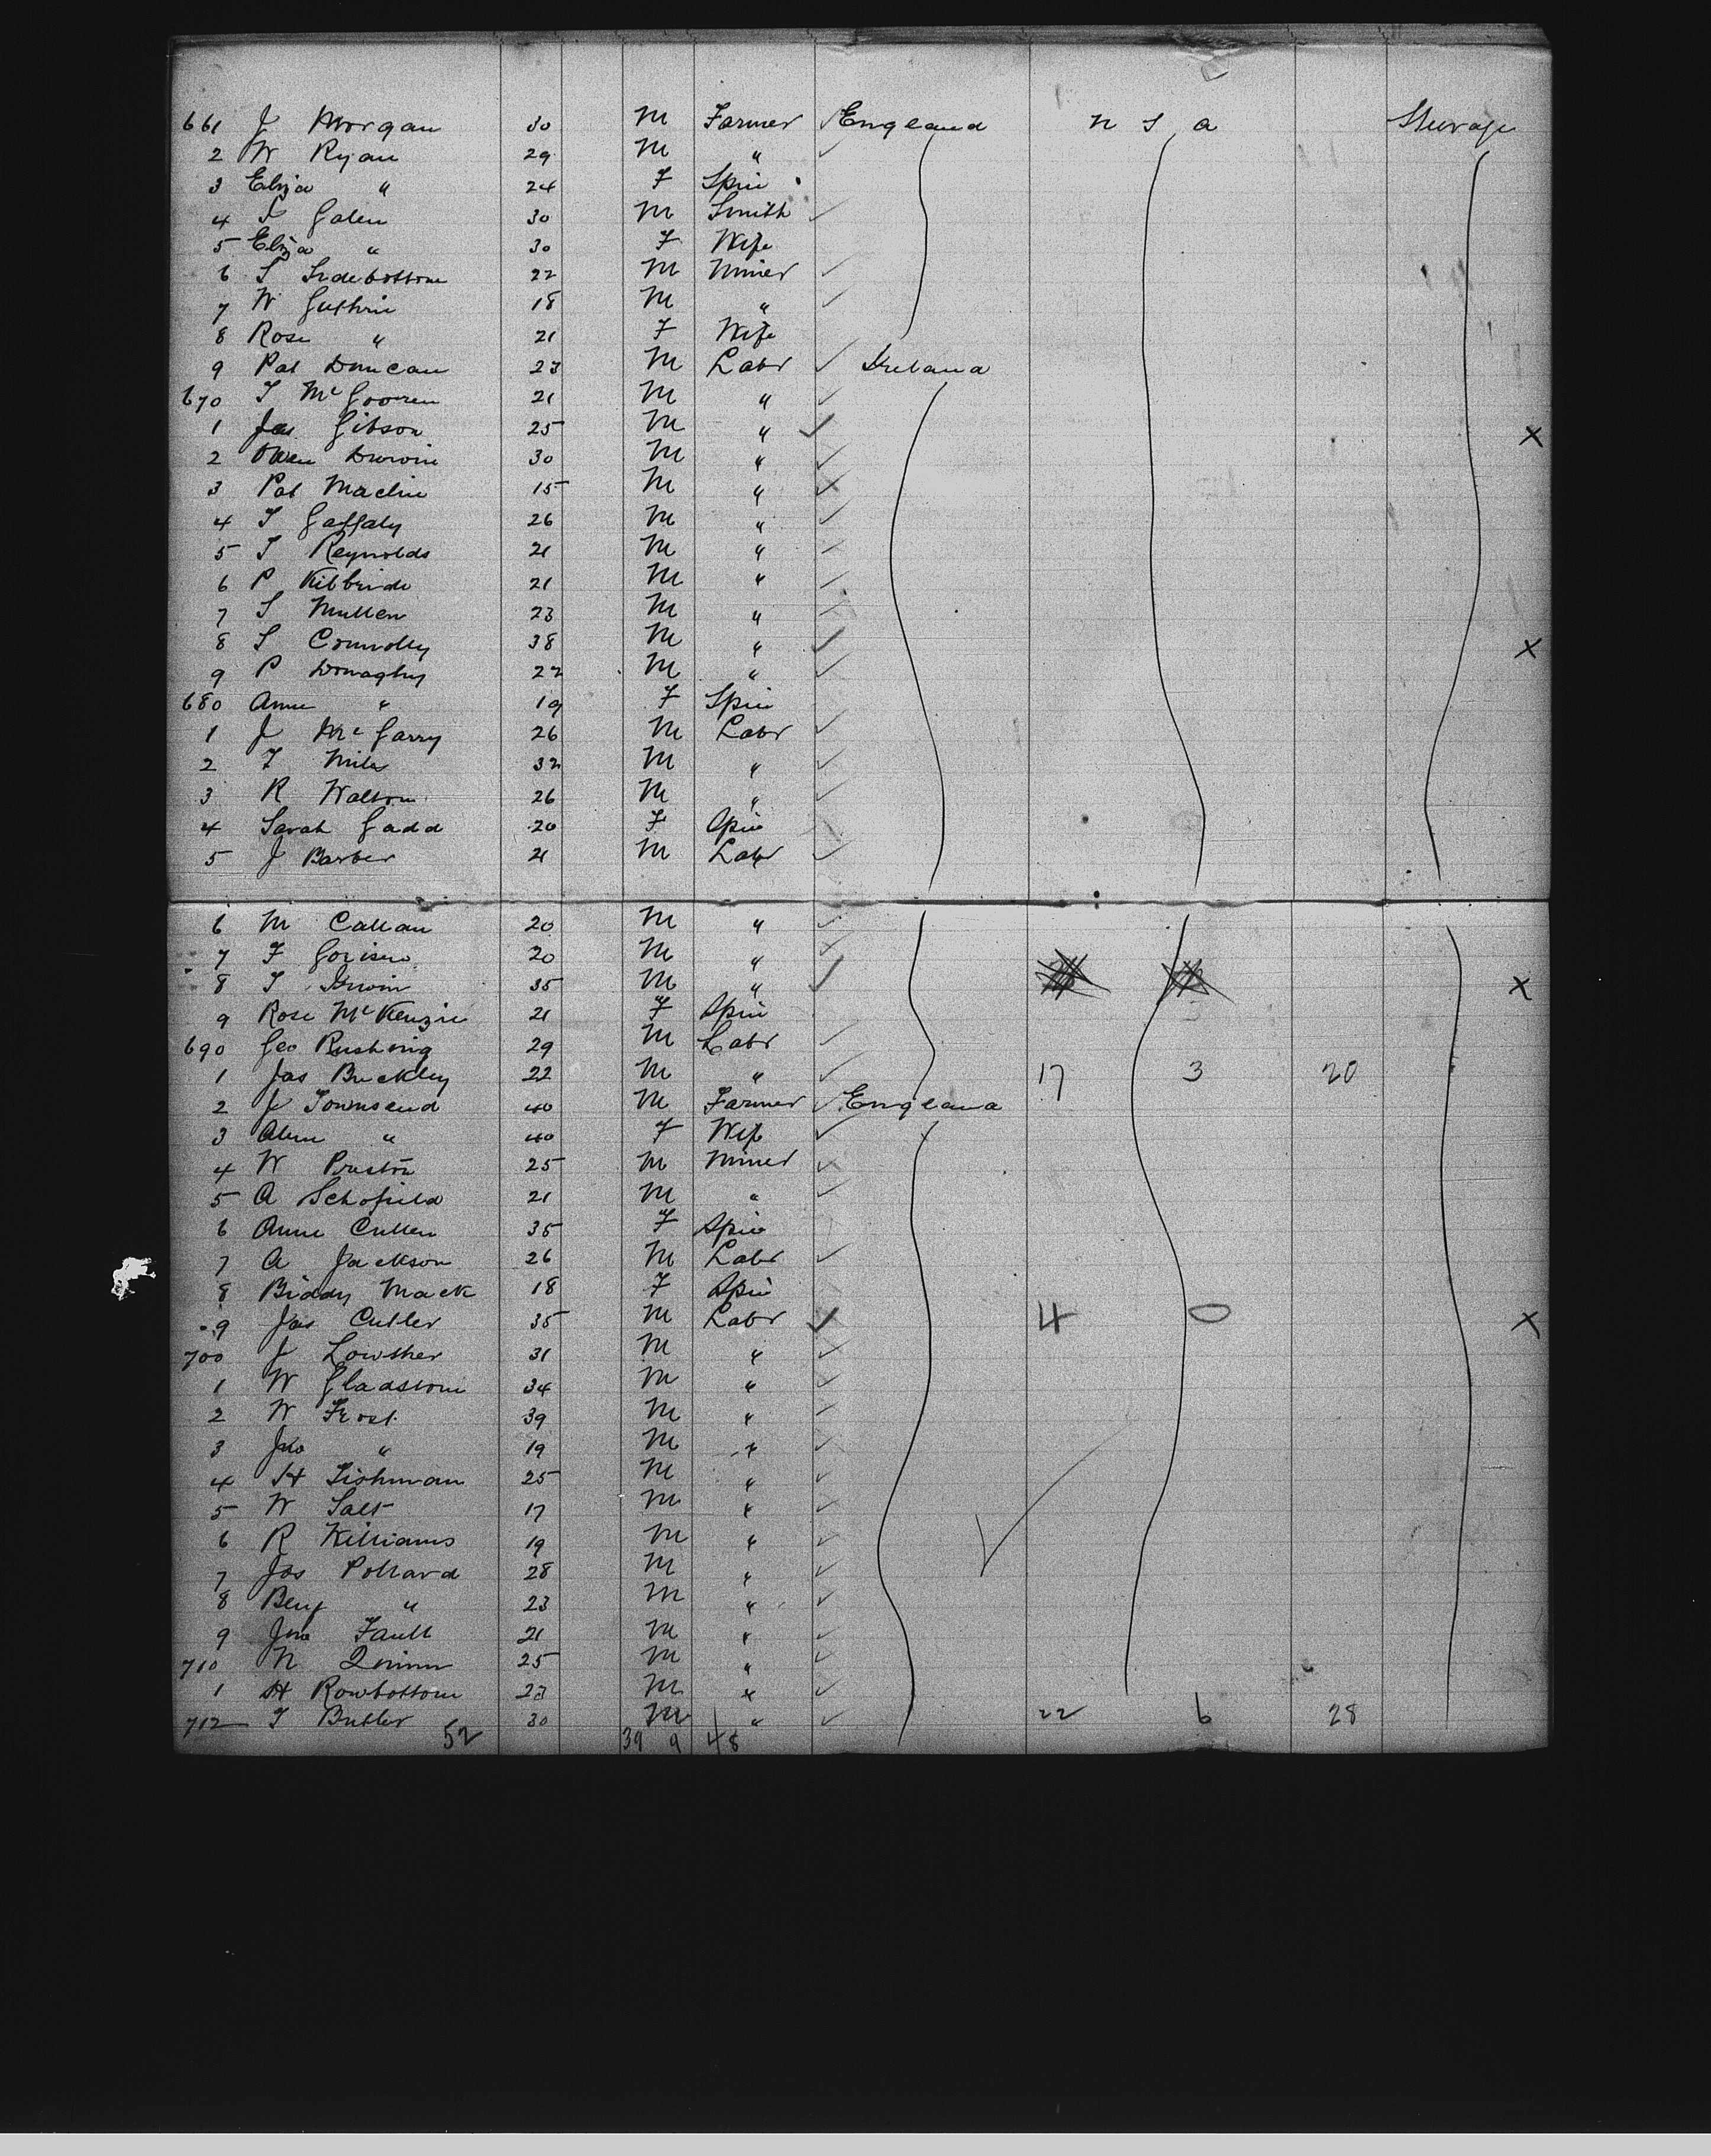 661 J Morgan 30 M Farmer England U S A Steerage
2 W Ryan 29 M "
3 Eliza " 24 F Spin
4 J Galen 30 M Smith
5 Eliza " 30 F Wife
6 S Sidebottom 22 M Miner
7 W Guthrie 18 M "
8 Rose " 21 F Wife
9 Pat Duncan 23 M Labr Ireland
670 T 21 M "
1 Jas Gibson 25 M " X
2 Owen 30 M "
3 Pat 15 M "
4 T Gaffaly 26 M "
5 T Reynolds 21 M "
6 P Kilbride 21 M "
7 S Mullen 23 M "
8 S Connolly 38 M " X
9 P Donaghy 22 M "
680 Anne " 19 F Spin
1 J McGarry 26 M Labr
2 F 32 M "
3 R Walton 26 M "
4 Sarah Gadd 20 F Spin
5 J Barber 21 M Labr
6 M Callan 20 M "
7 F 20 M "
8 T Irwin 35 M " X
9 Rose McKenzie 21 F Spin
690 Geo Rushing 29 M Labr
1 Jas Buckley 22 M " 17 3 20
2 J Townsend 40 M Farmer England
3 " 40 F Wife
4 W Preston 25 M Miner
5 A Schofield 21 M "
6 Anne Cullen 35 F Spin
7 A Jackson 26 M Labr
8 Biddy Mack 18 F Spin
9 Jas Cutler 35 M Labr 4 0 X
700 J Lowther 31 M "
1 W Gladstone 34 M "
2 W Frost 39 M "
3 Jno " 19 M "
4 H Fishman 25 M "
5 W Salt 17 M "
6 R Williams 19 M "
7 Jos Pollard 28 M "
8 Benj " 23 M "
9 Jno Faull 21 M "
710 N Quinn 25 M "
1 H Rowbottom 23 M "
712 T Butler 30 M " 22 6 28
52 39 9 48